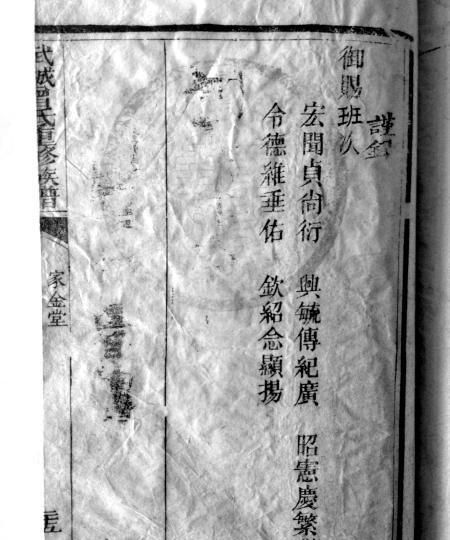 謹
御賜班次
宏聞貞尚衍 興毓傳紀廣 昭憲慶繁
令德維垂佑 欽紹念顯揚
武城曾氏重修族譜
家金堂